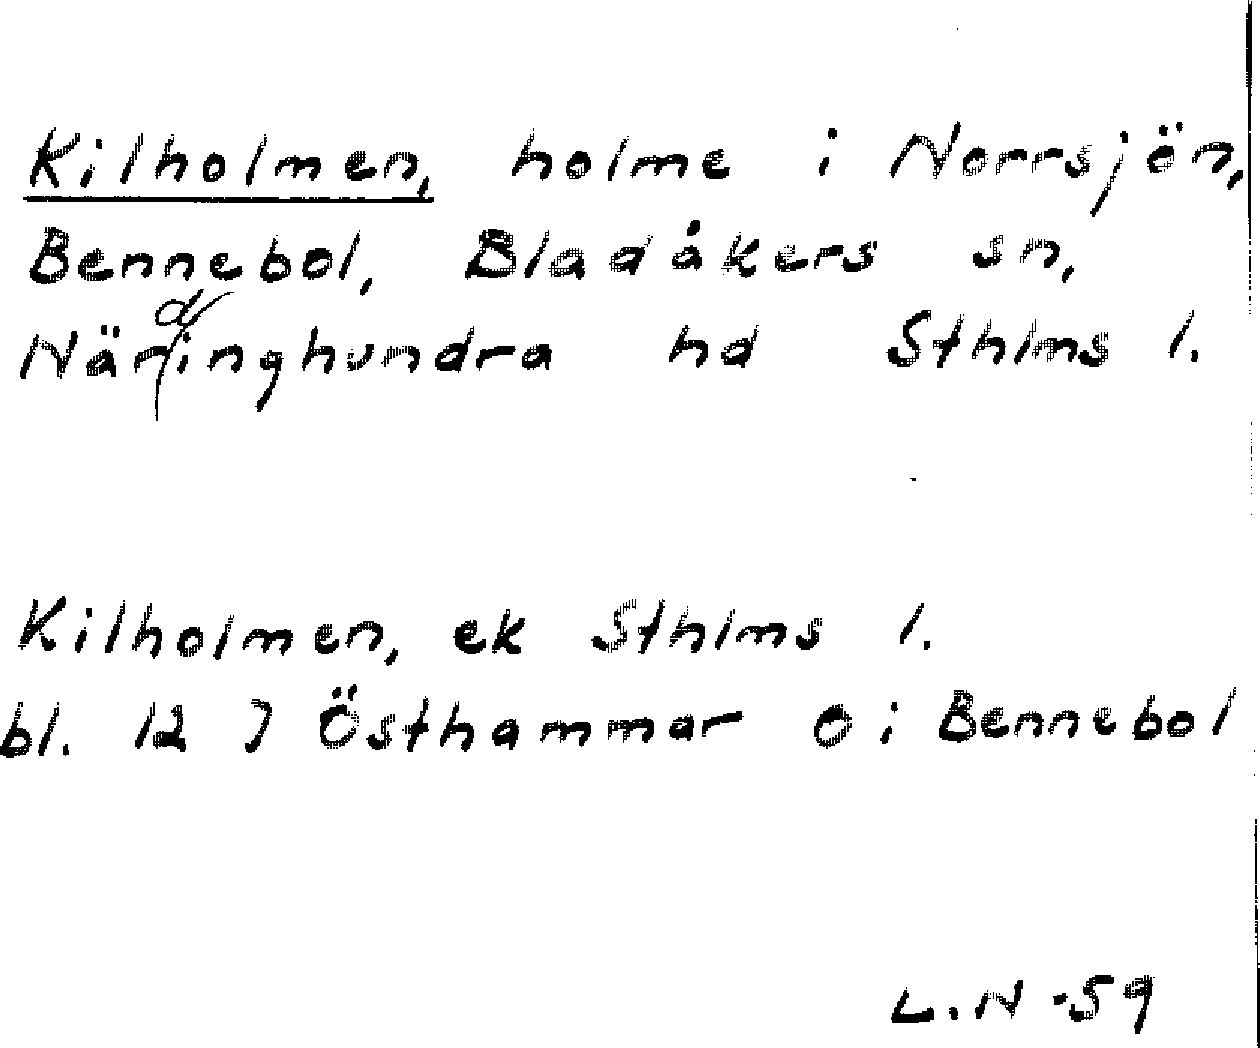 Kilholmen, holme i Norrsjön,
Bennebol, Bladåkers sn,
Närdinghundra hd Sthlms l.
Kilholmen, ek Sthlms l.
bl. 12 J Östhammar O i Bennebol
L.N -59